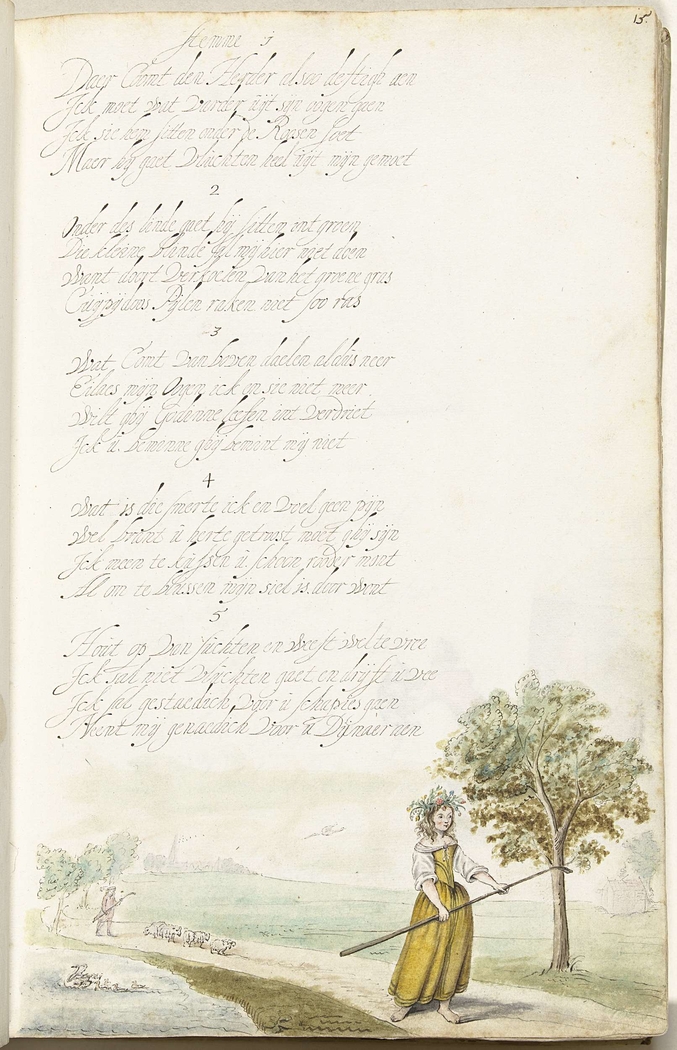 15.
Stemme 1
Daer Comt den Herder alsoo deftigh aen
Ick moet wat varder uijt sijn oogen gaen
Ick sie hem sitten onder de Roosen soet
Maer hij gaet vluchten heel uijt mijn gemoet
2
Onder des linde gaet hij sitten ont groen
Die kleijne blinde sal mij hier niet doen
Want doogt verkoelen van het groene gras
Cuijpijdoos Pijlen raken niet soo ras
3
Wat, Comt van boven daelen aldus neer
Eilaes mijn Oogen ick en sie niet meer
Wilt ghij Godinne leefen int verdriet
Ick u. beminne ghij bemint mij niet
4
Wat is die smerte ick en voel geen pijn
Wel brant u herte getroost moet ghij sijn
Ick meen te kussen u schoon rooder mont
Al om te blussen mijn siel is door wont
5
Hout op van suchten en weest wel te vree
Ick sal niet vluchten gaet en drijft u vee
Ick sal gestaedich voor u schapies gaen
Neemt mij genaedich voor u Dijnaer aen